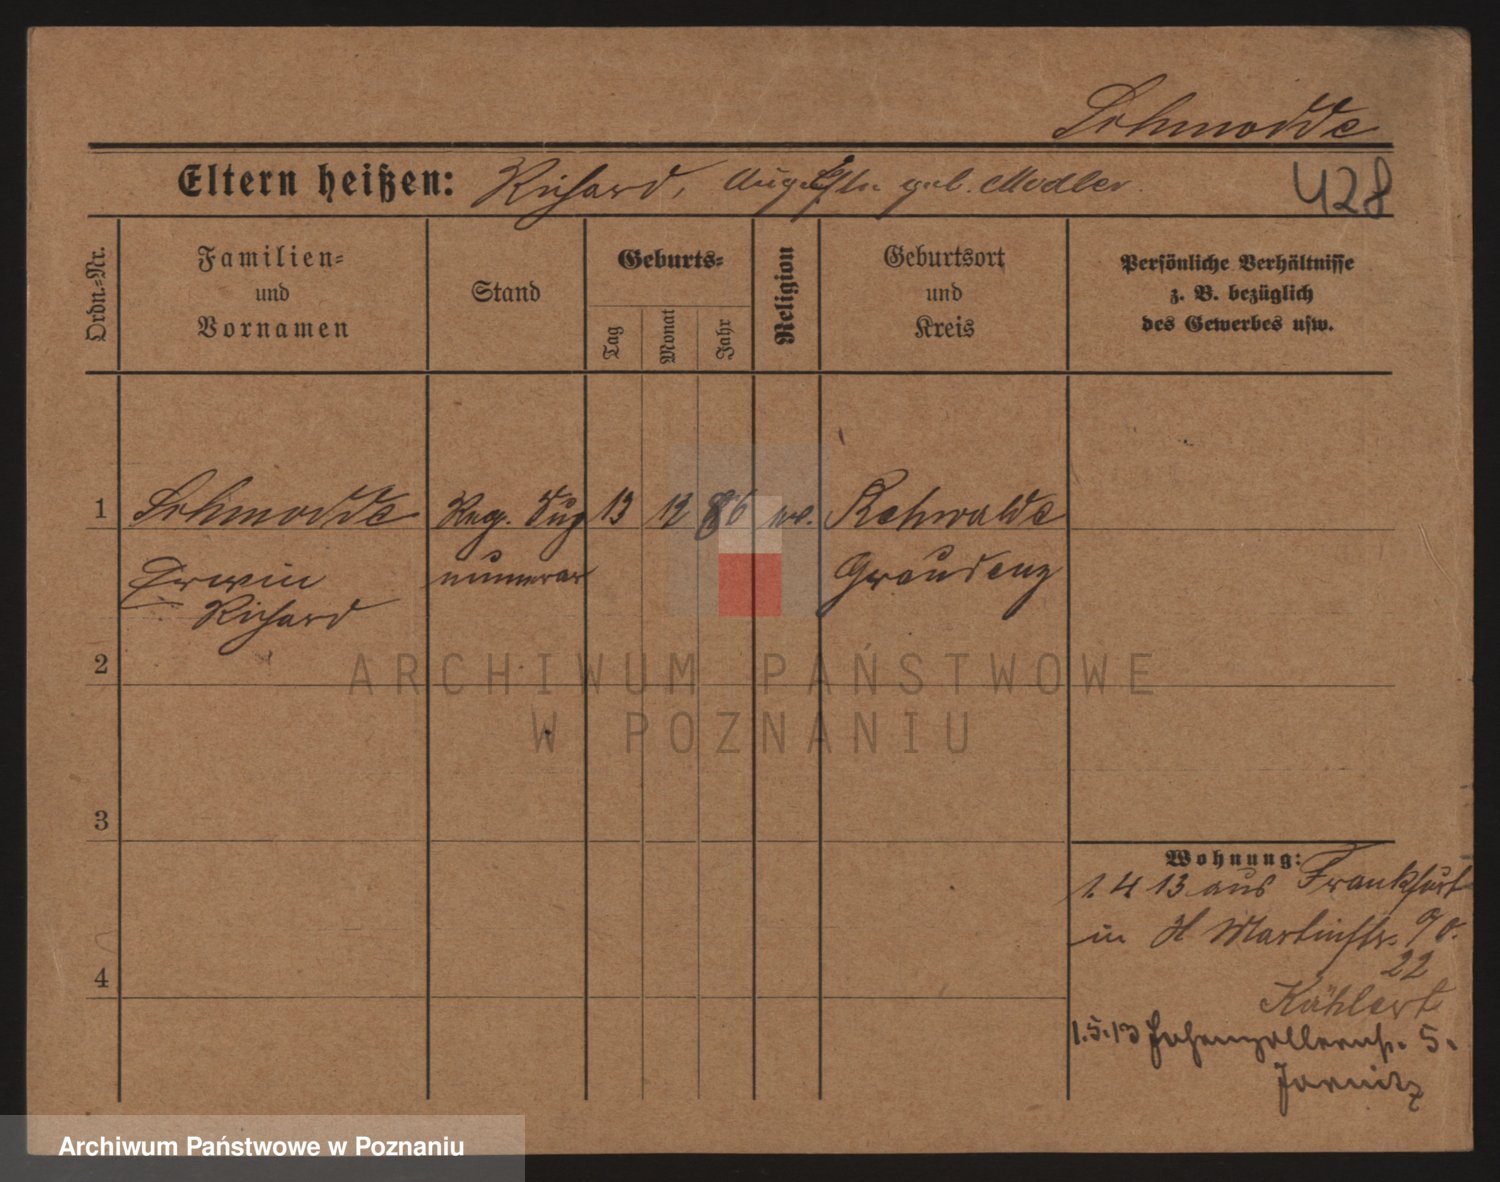 Schmodde
Eltern heißen: Richard, Auguste geb. Modler.
428
Ordn.-Nr.
Familien-
und
Vornamen
Stand
Geburts-
Tag
Monat
Jahr
Religion
Geburtsort
und
Kreis
Persönliche Verhältnisse
z. B. bezüglich
des Gewerbes usw.
1 Schmodde Reg. Sup 13 12 86 ev. Rehwalde
Erwin numerar Graudenz
Richard
2
ARCHIWUM PAŃSTWOWE
W POZNANIU
3
Wohnung:
1. 4 13 aus Frankfurt
in H Martinstr. 70.
22
Kählert
4
1.5.13 Hohenzollernstr. 5.
Jarnitz
Archiwum Państwowe w Poznaniu